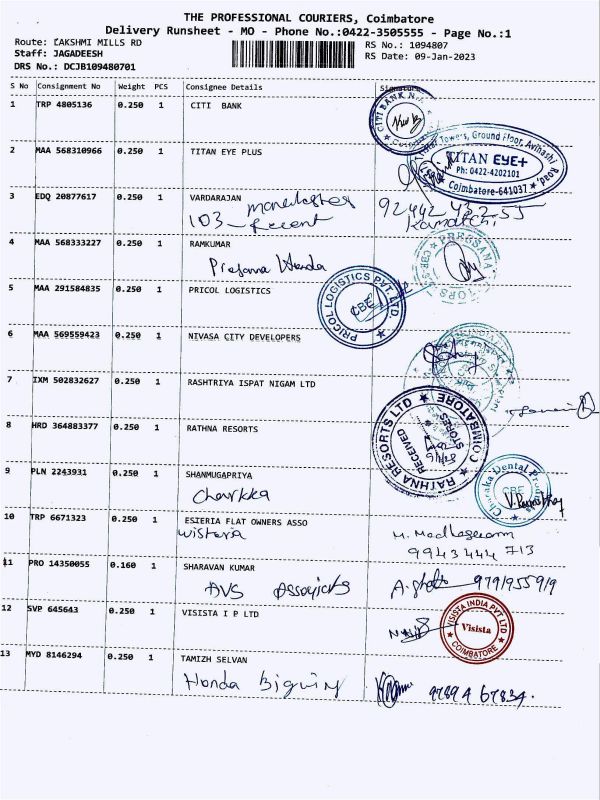 THE PROFESSIONAL COURIERS, Coimbatore
Delivery Runsheet - MO - Phone No.:0422-3505555 - Page No.:1
Route: LAKSHMI MILLS RD RS No.: 1094807
Staff: JAGADEESH RS Date: 09-Jan-2023
DRS No.: DCJB109480701
S No Consignment No Weight PCS Consignee Details Signature
1 TRP 4805136 0.250 1 CITI BANK
CITI BANK
2 MAA 568310966 0.250 1 TITAN EYE PLUS
Towers, Ground Floor, Avinashi Road
TITAN EYE+
Ph: 0422-4202101
Coimbatore-641037
3 EDQ 20877617 0.250 1 VARDARAJAN
103
4 MAA 568333227 0.250 1 RAMKUMAR
Prasanna Honda
PRESSANA
5 MAA 291584835 0.250 1 PRICOL LOGISTICS
PRICOL LOGISTICS PVT LTD
CBE
6 MAA 569559423 0.250 1 NIVASA CITY DEVELOPERS
7 IXM 502832627 0.250 1 RASHTRIYA ISPAT NIGAM LTD
8 HRD 364883377 0.250 1 RATHNA RESORTS
RATHNA RESORTS LTD
COIMBATORE
RECEIVED
STORES
9 PLN 2243931 0.250 1 SHANMUGAPRIYA
Charkka
Charaka Dental Products
CBE
10 TRP 6671323 0.250 1 ESIERIA FLAT OWNERS ASSO
Wisteria
9943444 713
11 PRO 14350055 0.160 1 SHARAVAN KUMAR
AVS Associats
9791955919
12 SVP 645643 0.250 1 VISISTA I P LTD
VISISTA INDIA PVT LTD
Visista
COIMBATORE
13 MYD 8146294 0.250 1 TAMIZH SELVAN
Honda Bigwing
97894 67834.